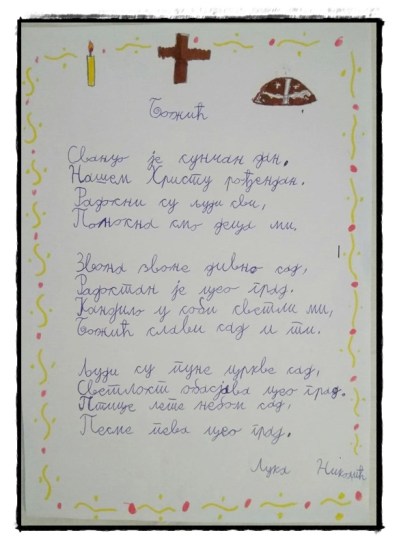 Божић
Свануо је сунчан дан,
Нашем Христу рођендан.
Радосни су људи сви,
Поносна смо деца ми.
Звона звоне дивно сад,
Радостан је цео град.
Кандило у соби светли ми,
Божић слави сад и ти.
Људи су пуне цркве сад,
Светлост обасјава цео град.
Птице лете небом сад,
Песме пева цео град.
Лука Николић